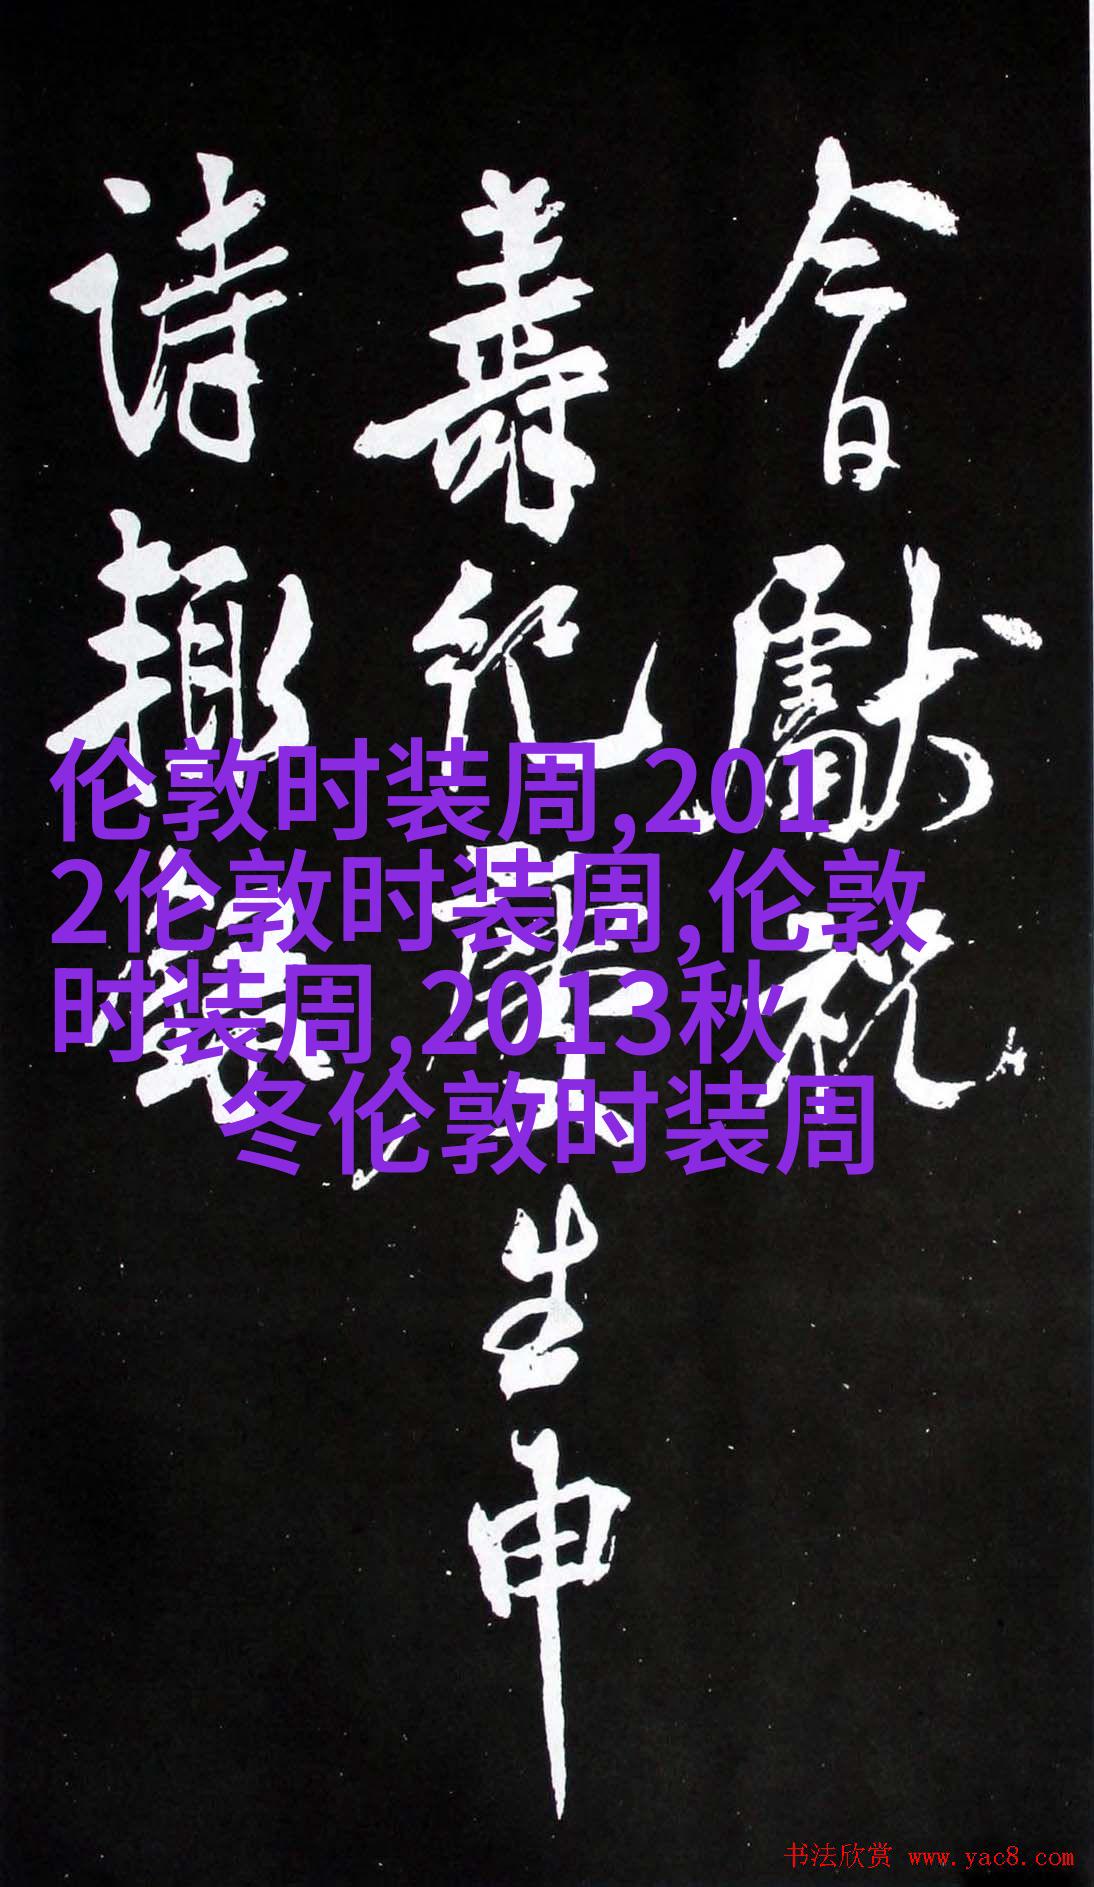 今日獻祝
壽
生申
詩趣
伦敦时装周,201
2伦敦时装周,伦敦
时装周,2013秋
冬伦敦时装周
书法欣赏 www.yac8.com